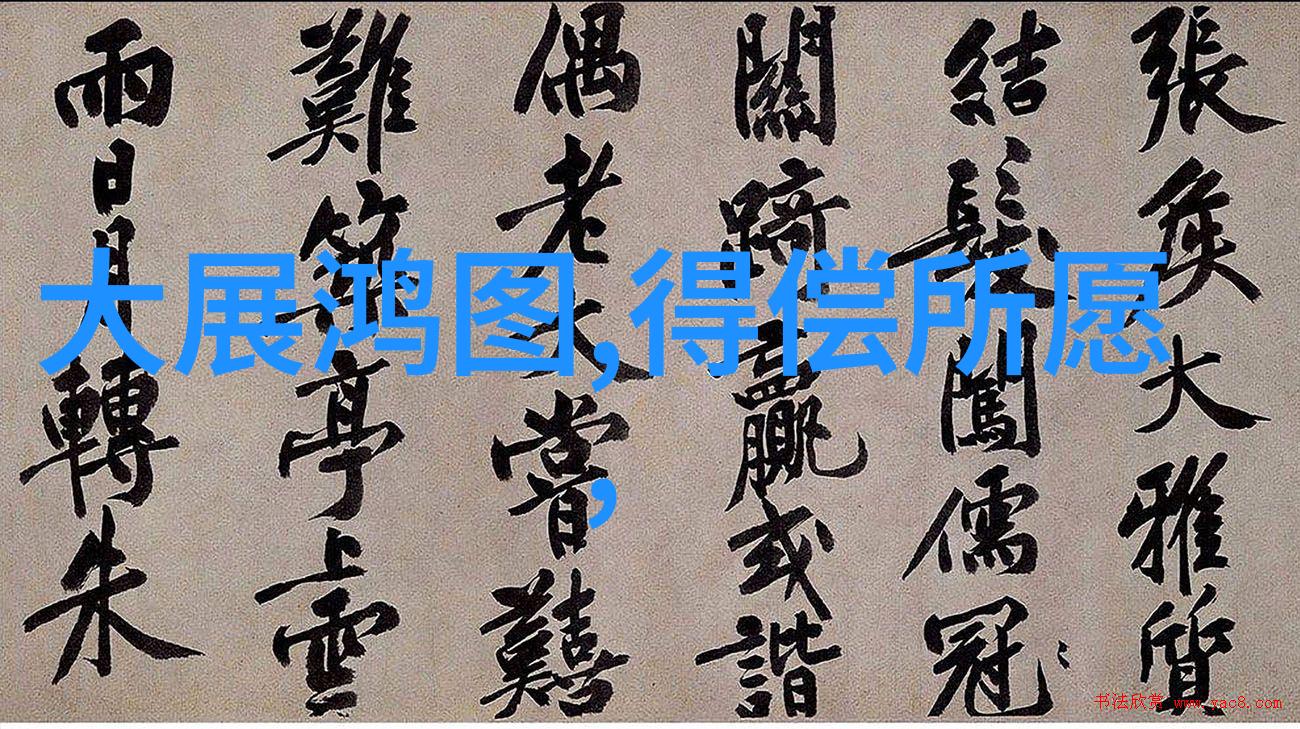 大展鸿图,得偿所愿
,
張侯大雅質
結髮闖儒冠
關踦贏或諧
偶老大嘗囏
難亭上雲
雨日月轉朱
书法欣赏 www.yac8.com